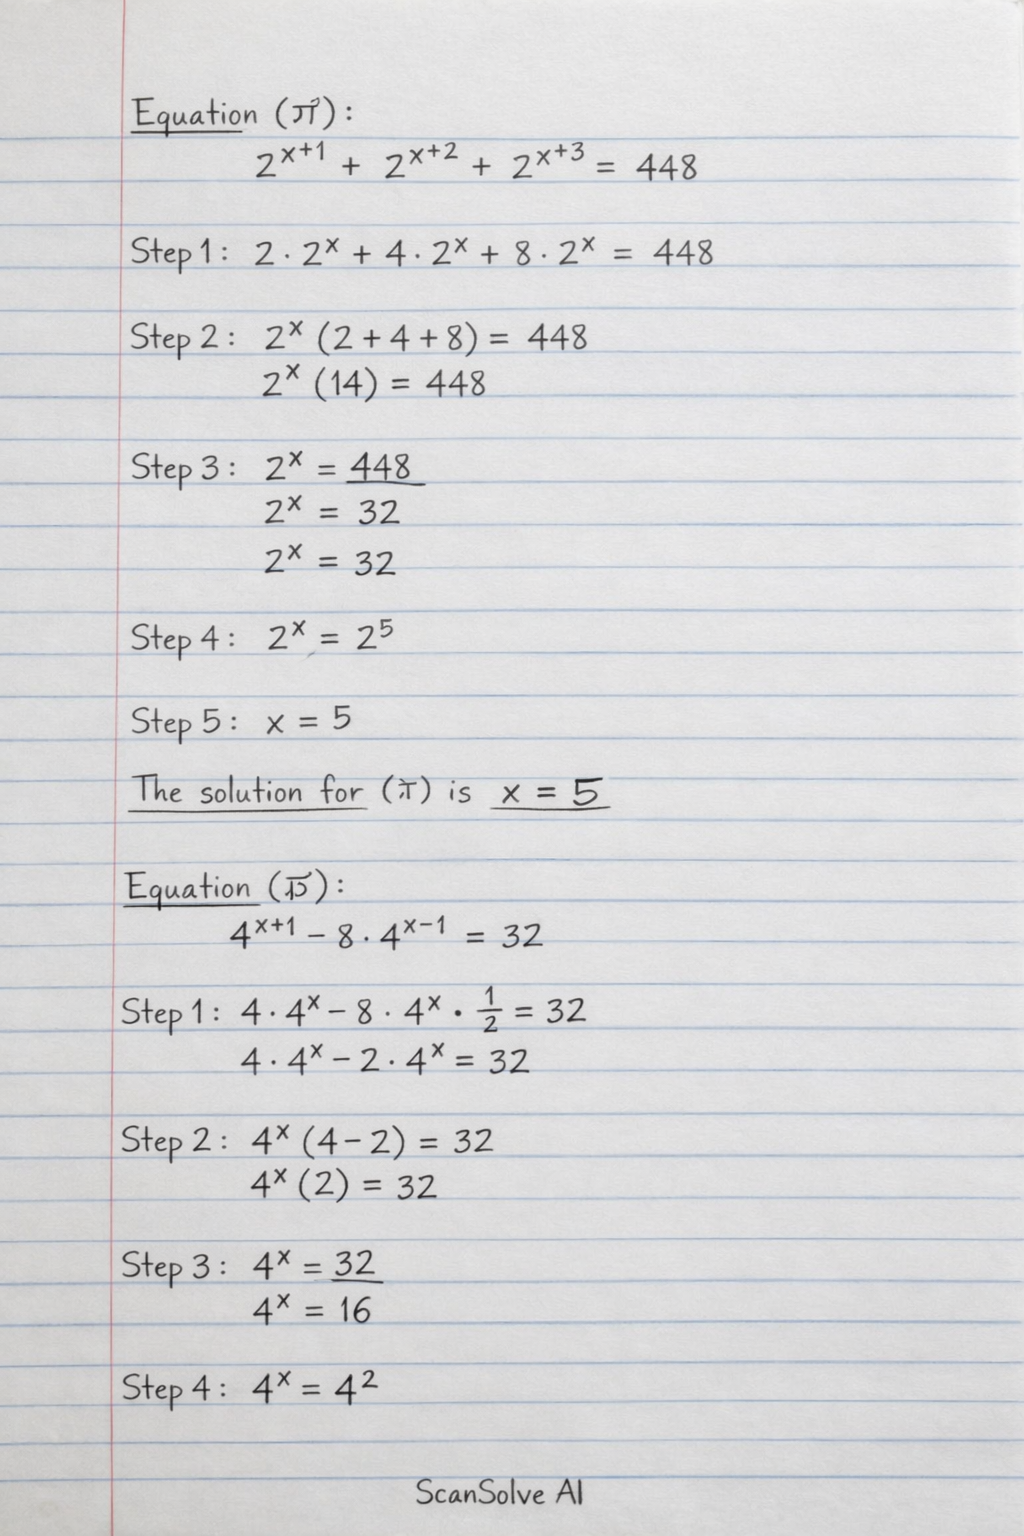 Equation (π):
2^{x+1} + 2^{x+2} + 2^{x+3} = 448
Step 1: 2 · 2^x + 4 · 2^x + 8 · 2^x = 448
Step 2: 2^x (2 + 4 + 8) = 448
2^x (14) = 448
Step 3: 2^x = 448
2^x = 32
2^x = 32
Step 4: 2^x = 2^5
Step 5: x = 5
The solution for (π) is x = 5
Equation ():
4^{x+1} − 8 · 4^{x−1} = 32
Step 1: 4 · 4^x − 8 · 4^x · 1/2 = 32
4 · 4^x − 2 · 4^x = 32
Step 2: 4^x (4 − 2) = 32
4^x (2) = 32
Step 3: 4^x = 32
4^x = 16
Step 4: 4^x = 4^2
ScanSolve AI